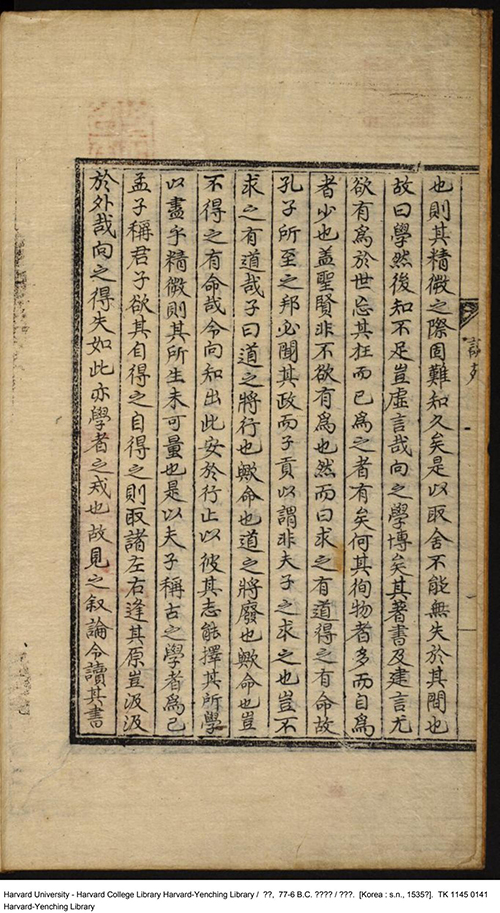 也則其精微之際固難知久矣是以取舍不能無失於其間也
故曰學然後知不足豈虛言哉向之學博矣其著書及建言尤
欲有爲於世忘其枉而已爲之者有矣何其徇物者多而自爲
者少也盖聖賢非不欲有爲也然而曰求之有道得之有命故
孔子所至之邦必聞其政而子貢以謂非夫子之求之也豈不
求之有道哉子曰道之將行也歟命也道之將廢也歟命也豈
不得之有命哉令向知出此安於行止以彼其志能擇其所學
以盡乎精微則其所至未可量也是以夫子稱古之學者爲己
孟子稱君子欲其自得之自得之則取諸左右逢其原豈汲汲
於外哉向之得失如此亦學者之戒也故見之叙論令讀其書
Harvard University - Harvard College Library Harvard-Yenching Library / ??, 77-6 B.C. ???? / ???. [Korea : s.n., 1535?]. TK 1145 0141
Harvard-Yenching Library